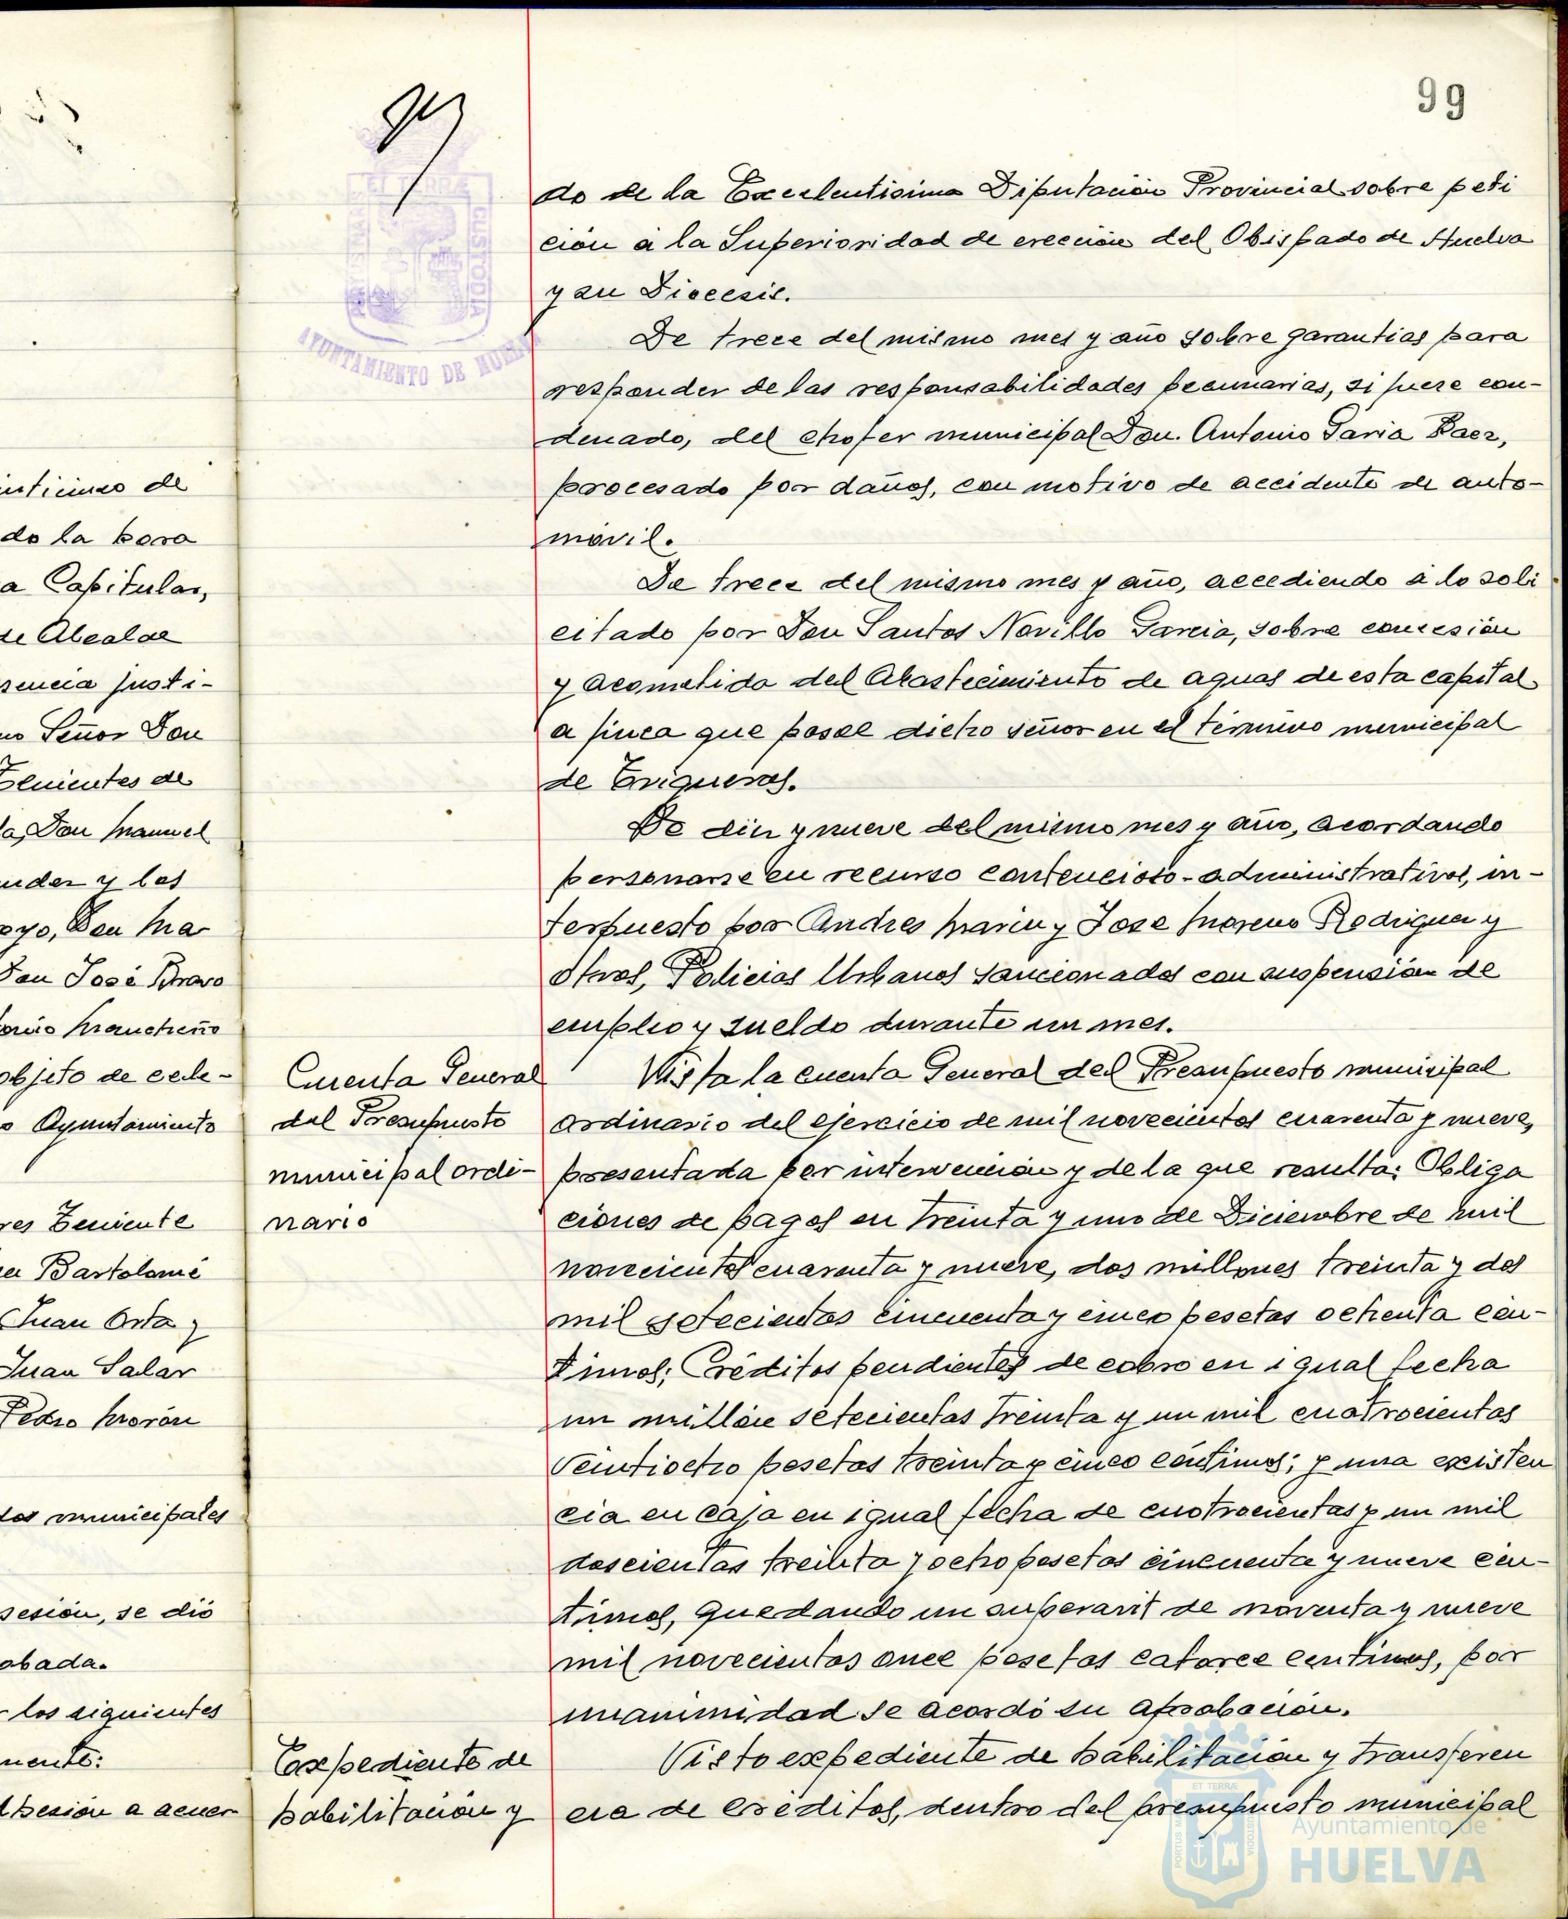 99
do de la Excelentisima Diputación Provincial sobre peti
ción á la Superioridad de erección del Obispado de Huelva
y su Diocesis.
De trece del mismo mes y año sobre garantias para
responder de las responsabilidades pecunarias, si fuere con-
denado, del chofer municipal Don. Antonio Garia Paez,
procesado por daños, con motivo de accidente de auto-
móvil.
De trece del mismo mes y año, accediendo á lo soli
citado por Don Santos Novillo Garcia, sobre concesión
y acometida del Abastecimiento de aguas de esta capital
a finca que posee dicho señor en el término municipal
de Trigueros.
De diez y nueve del mismo mes y año, acordando
personarse en recurso contencioso-administrativos, in-
terpuesto por Andres Marin y Jose Moreno Rodriguez y
otros, Policias Urbanos sancionados con suspensión de
empleo y sueldo durante un mes.
Cuenta General
del Presupuesto
municipal ordi-
nario
Vista la cuenta General del Presupuesto municipal
ordinario del ejercicio de mil novecientos cuarenta y nueve,
presentada por intervención y de la que resulta: Obliga
ciones de pagos en treinta y uno de Diciembre de mil
novecientos cuarenta y nueve, dos millones treinta y dos
mil setecientas cincuenta y cinco pesetas ochenta cén-
timos; Créditos pendientes de cobro en igual fecha
un millón setecientas treinta y un mil cuatrocientas
veintiocho pesetas treinta y cinco céntimos; y una existen
cia en caja en igual fecha de cuatrocientas y un mil
doscientas treinta y ocho pesetas cincuenta y nueve cén-
timos, quedando un superavit de noventa y nueve
mil novecientas once pesetas catorce centimos, por
unanimidad se acordó su aprobación.
Expediente de
habilitación y
Visto expediente de habilitación y transferen
cia de créditos, dentro del presupuesto municipal
ET TERRÆ
CUSTODIA
AYUNTAMIENTO DE HUELVA
inticinco de
do la hora
a Capitular,
de Alcalde
sencia justi-
no Señor Don
Tenientes de
la, Don Manuel
nder y los
oyo, Don Ma
Don José Bravo
onio Mancheño
objeto de cele-
o Ayuntamiento
res Teniente
Bartolomé
Juan Orta y
Juan Salar
Pedro Morón
los municipales
sesión, se dió
obada.
los siguientes
mente:
sesión a acuer
Ayuntamiento de
HUELVA